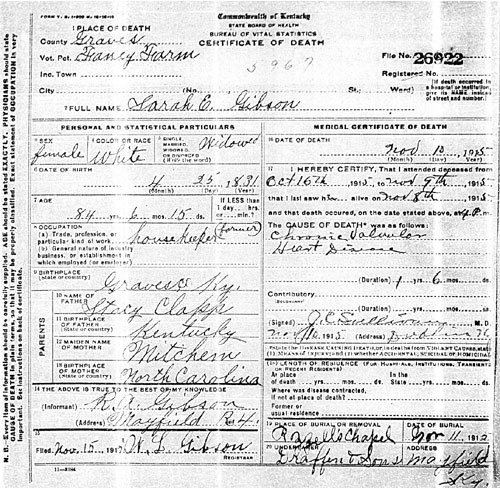 Commonwealth of Kentucky
STATE BOARD OF HEALTH
BUREAU OF VITAL STATISTICS
CERTIFICATE OF DEATH
1 PLACE OF DEATH
County Graves
Vot. Pct. Fancy Farm
5967
File No. 26922
Inc. Town
Registered No.
City (No. St.; Ward)
(If death occurred in a hospital or institution give its NAME instead of street and number.)
2 FULL NAME Sarah E. Gibson
PERSONAL AND STATISTICAL PARTICULARS
3 SEX female
4 COLOR OR RACE White
5 SINGLE, MARRIED, WIDOWED, OR DIVORCED (Write the word) Widow
6 DATE OF BIRTH
4 1831
(Month) (Day) (Year)
7 AGE
84 yrs. 6 mos. 15 ds.
If LESS than 1 day... hrs. or ... min.?
8 OCCUPATION
(a) Trade, profession, or particular kind of work housekeeper (former)
(b) General nature of industry, business, or establishment in which employed (or employer)
9 BIRTHPLACE (State or country) Graves Ky.
PARENTS
10 NAME OF FATHER Stacy Clapp
11 BIRTHPLACE OF FATHER (State or country) Kentucky
12 MAIDEN NAME OF MOTHER Mitchem
13 BIRTHPLACE OF MOTHER (State or country) North Carolina
14 THE ABOVE IS TRUE TO THE BEST OF MY KNOWLEDGE
(Informant) Gibson
(Address) Mayfield R 4
15
Filed Nov. 15 1915 Gibson
REGISTRAR
MEDICAL CERTIFICATE OF DEATH
16 DATE OF DEATH
Nov 10, 1915
(Month) (Day) (Year)
17 I HEREBY CERTIFY, That I attended deceased from
Oct 15th 1915 to Nov 9th 1915
that I last saw alive on Nov 8th 1915
and that death occurred, on the date stated above, at P.m.
The CAUSE OF DEATH* was as follows:
Chronic Valvular
Heart Disease
(Duration) 1 yrs. 6 mos. ds.
Contributory
(Duration) yrs. mos. ds.
(Signed) J.C. Sullivan, M. D.
1915 (Address)
18 LENGTH OF RESIDENCE (For Hospitals, Institutions, Transients, or Recent Residents)
At place of death yrs. mos. ds. In the State yrs. mos. ds.
Where was disease contracted, if not at place of death?
Former or usual residence
19 PLACE OF BURIAL OR REMOVAL
DATE OF BURIAL
Chapel Nov 11 1915
20 UNDERTAKER
ADDRESS
Sons Mayfield
Ky